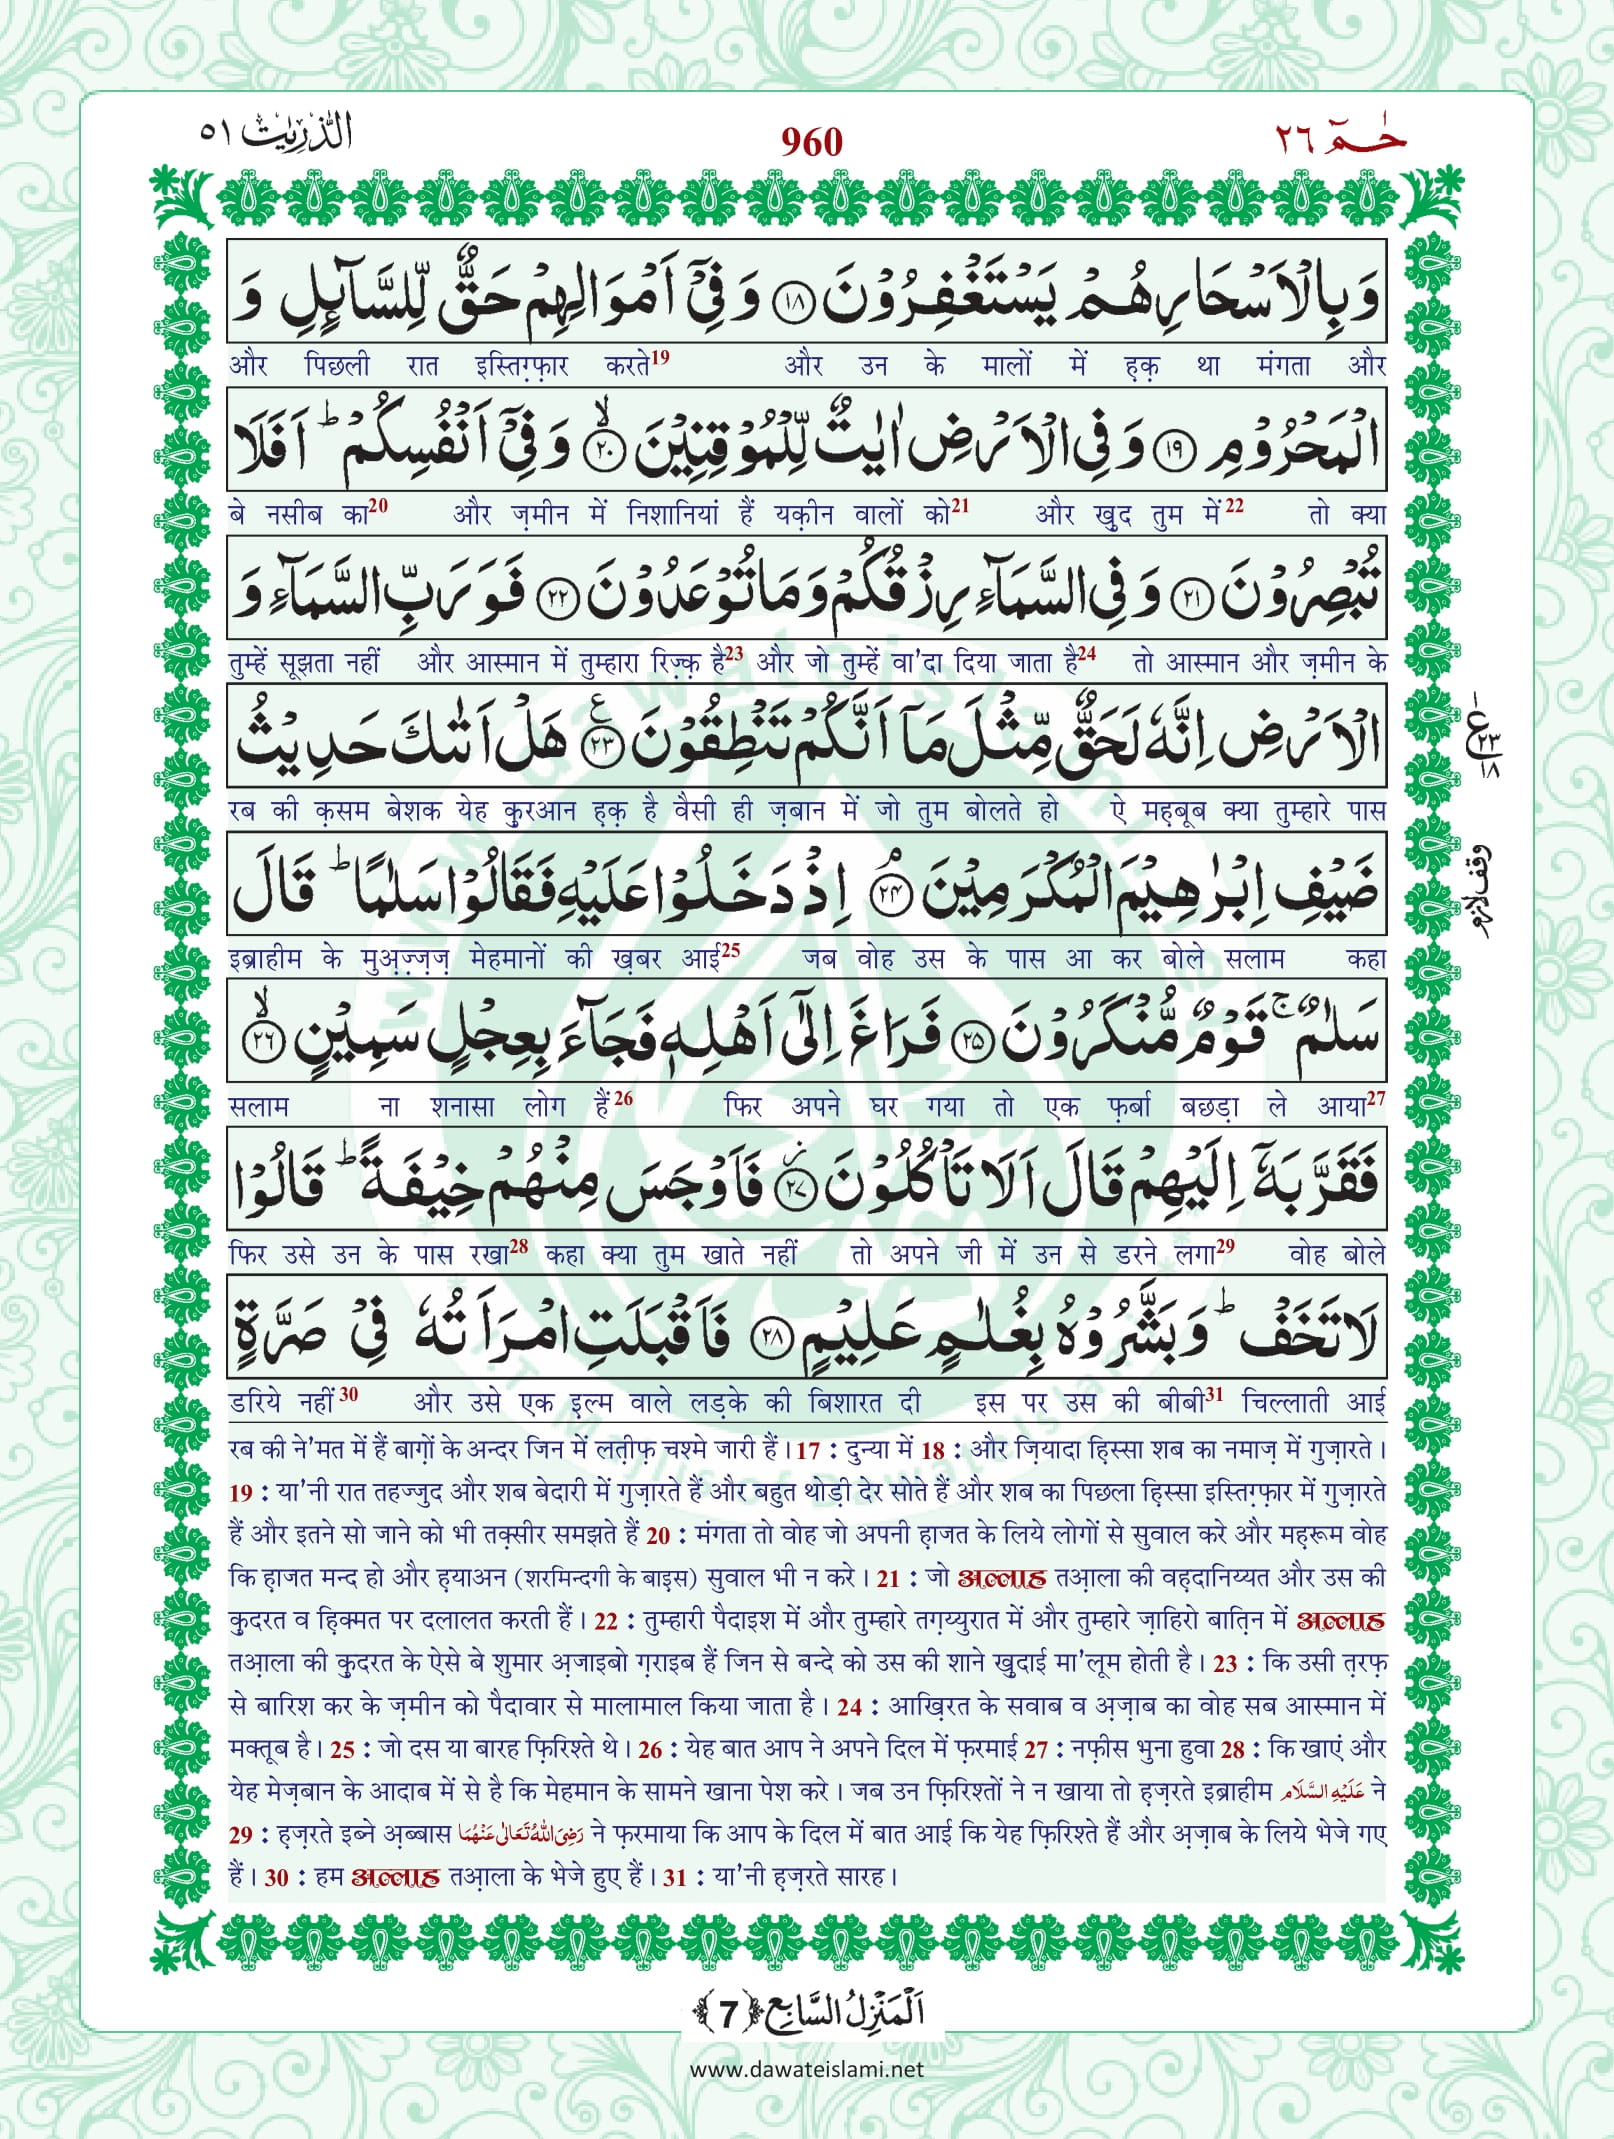 حٰمٓ ٢٦
960
الذّٰرِيٰت ٥١
وَبِالْاَسْحَارِ هُمْ يَسْتَغْفِرُوْنَ ﴿١٨﴾ وَفِیْۤ اَمْوَالِهِمْ حَقٌّ لِّلسَّآىِٕلِ وَ
और पिछली रात इस्तिग़्फ़ार करते19 और उन के मालों में ह़क़ था मंगता और
الْمَحْرُوْمِ ﴿١٩﴾ وَفِی الْاَرْضِ اٰیٰتٌ لِّلْمُوْقِنِیْنَ ۙ﴿٢٠﴾ وَفِیْۤ اَنْفُسِكُمْ ؕ اَفَلَا
बे नसीब का20 और ज़मीन में निशानियां हैं यक़ीन वालों को21 और खुद तुम में22 तो क्या
تُبْصِرُوْنَ ﴿٢١﴾ وَفِی السَّمَآءِ رِزْقُكُمْ وَمَا تُوْعَدُوْنَ ﴿٢٢﴾ فَوَرَبِّ السَّمَآءِ وَ
तुम्हें सूझता नहीं और आस्मान में तुम्हारा रिज़्क़ है23 और जो तुम्हें वा'दा दिया जाता है24 तो आस्मान और ज़मीन के
الْاَرْضِ اِنَّهٗ لَحَقٌّ مِّثْلَ مَاۤ اَنَّكُمْ تَنْطِقُوْنَ ﴿٢٣﴾ۧ هَلْ اَتٰىكَ حَدِیْثُ
ع ٢٣ ١٨
रब की क़सम बेशक येह क़ुरआन ह़क़ है वैसी ही ज़बान में जो तुम बोलते हो ऐ मह़बूब क्या तुम्हारे पास
ضَیْفِ اِبْرٰهِیْمَ الْمُكْرَمِیْنَ ۘ﴿٢٤﴾ اِذْ دَخَلُوْا عَلَیْهِ فَقَالُوْا سَلٰمًا ؕ قَالَ
وقف لازم
इब्राहीम के मुअ़ज़्ज़ज़ मेहमानों की ख़बर आई25 जब वोह उस के पास आ कर बोले सलाम कहा
سَلٰمٌ ۚ قَوْمٌ مُّنْكَرُوْنَ ﴿٢٥﴾ فَرَاغَ اِلٰۤى اَهْلِهٖ فَجَآءَ بِعِجْلٍ سَمِیْنٍ ۙ﴿٢٦﴾
सलाम ना शनासा लोग हैं26 फिर अपने घर गया तो एक फ़र्बा बछड़ा ले आया27
فَقَرَّبَهٗۤ اِلَیْهِمْ قَالَ اَلَا تَاْكُلُوْنَ ؗ﴿٢٧﴾ فَاَوْجَسَ مِنْهُمْ خِیْفَةً ؕ قَالُوْا
फिर उसे उन के पास रखा28 कहा क्या तुम खाते नहीं तो अपने जी में उन से डरने लगा29 वोह बोले
لَا تَخَفْ ؕ وَبَشَّرُوْهُ بِغُلٰمٍ عَلِیْمٍ ﴿٢٨﴾ فَاَقْبَلَتِ امْرَاَتُهٗ فِیْ صَرَّةٍ
डरिये नहीं30 और उसे एक इ़ल्म वाले लड़के की बिशारत दी इस पर उस की बीबी31 चिल्लाती आई
रब की ने'मत में हैं बाग़ों के अन्दर जिन में लत़ीफ़ चश्मे जारी हैं। 17 : दुन्या में 18 : और ज़ियादा हि़स्सा शब का नमाज़ में गुज़ारते।
19 : या'नी रात तहज्जुद और शब बेदारी में गुज़ारते हैं और बहुत थोड़ी देर सोते हैं और शब का पिछला हि़स्सा इस्तिग़्फ़ार में गुज़ारते
हैं और इतने सो जाने को भी तक़्सीर समझते हैं 20 : मंगता तो वोह जो अपनी ह़ाजत के लिये लोगों से सुवाल करे और मह़रूम वोह
कि ह़ाजत मन्द हो और ह़याअन (शरमिन्दगी के बाइस) सुवाल भी न करे। 21 : जो अल्लाह तआ़ला की वह़दानिय्यत और उस की
क़ुदरत व ह़िक्मत पर दलालत करती हैं। 22 : तुम्हारी पैदाइश में और तुम्हारे तग़य्युरात में और तुम्हारे ज़ाहिरो बात़िन में अल्लाह
तआ़ला की क़ुदरत के ऐसे बे शुमार अ़जाइबो ग़राइब हैं जिन से बन्दे को उस की शाने ख़ुदाई मा'लूम होती है। 23 : कि उसी त़रफ़
से बारिश कर के ज़मीन को पैदावार से मालामाल किया जाता है। 24 : आख़िरत के सवाब व अ़ज़ाब का वोह सब आस्मान में
मक्तूब है। 25 : जो दस या बारह फ़िरिश्ते थे। 26 : येह बात आप ने अपने दिल में फ़रमाई 27 : नफ़ीस भुना हुवा 28 : कि खाएं और
येह मेज़बान के आदाब में से है कि मेहमान के सामने खाना पेश करे। जब उन फ़िरिश्तों ने न खाया तो ह़ज़रते इब्राहीम عَلَيْهِ السَّلَام ने
29 : ह़ज़रते इब्ने अ़ब्बास رَضِىَ اللهُ تَعَالٰى عَنْهُمَا ने फ़रमाया कि आप के दिल में बात आई कि येह फ़िरिश्ते हैं और अ़ज़ाब के लिये भेजे गए
हैं। 30 : हम अल्लाह तआ़ला के भेजे हुए हैं। 31 : या'नी ह़ज़रते सारह।
اَلْمَنْزِلُ السَّابِع ﴿7﴾
www.dawateislami.net